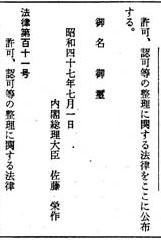 許可、認可等の整理に関する法律をここに公布
する。
御名 御璽
昭和四十七年七月一日
内閣総理大臣 佐藤 栄作
法律第百十一号
許可、認可等の整理に関する法律